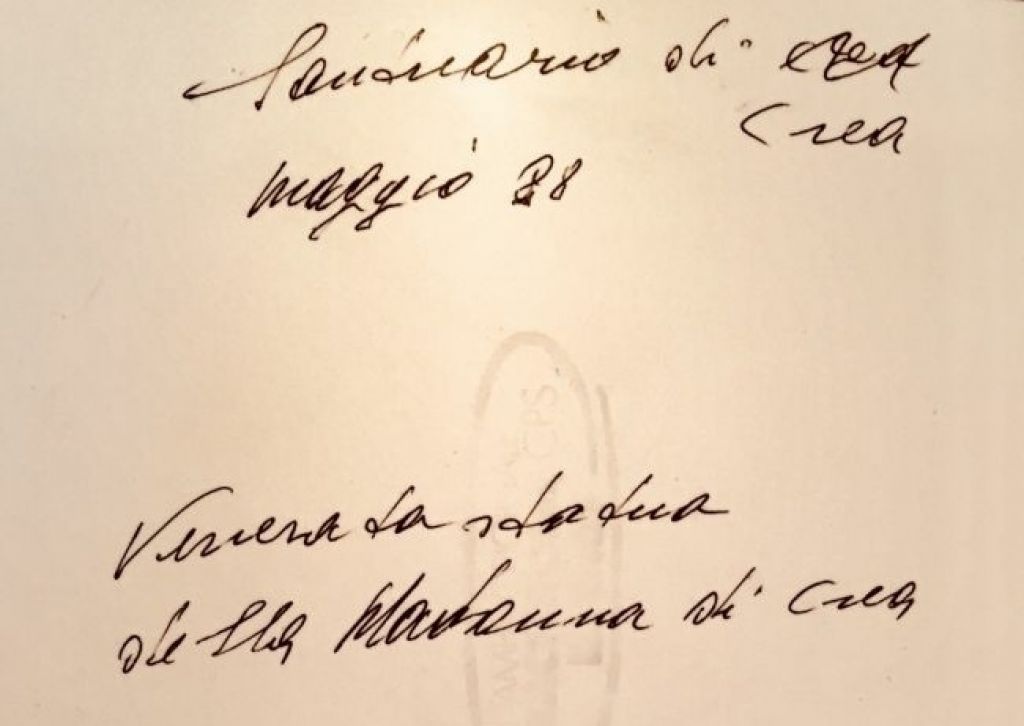 Santuario di Crea
Crea
maggio 88
Venerata statua
della Madonna di Crea